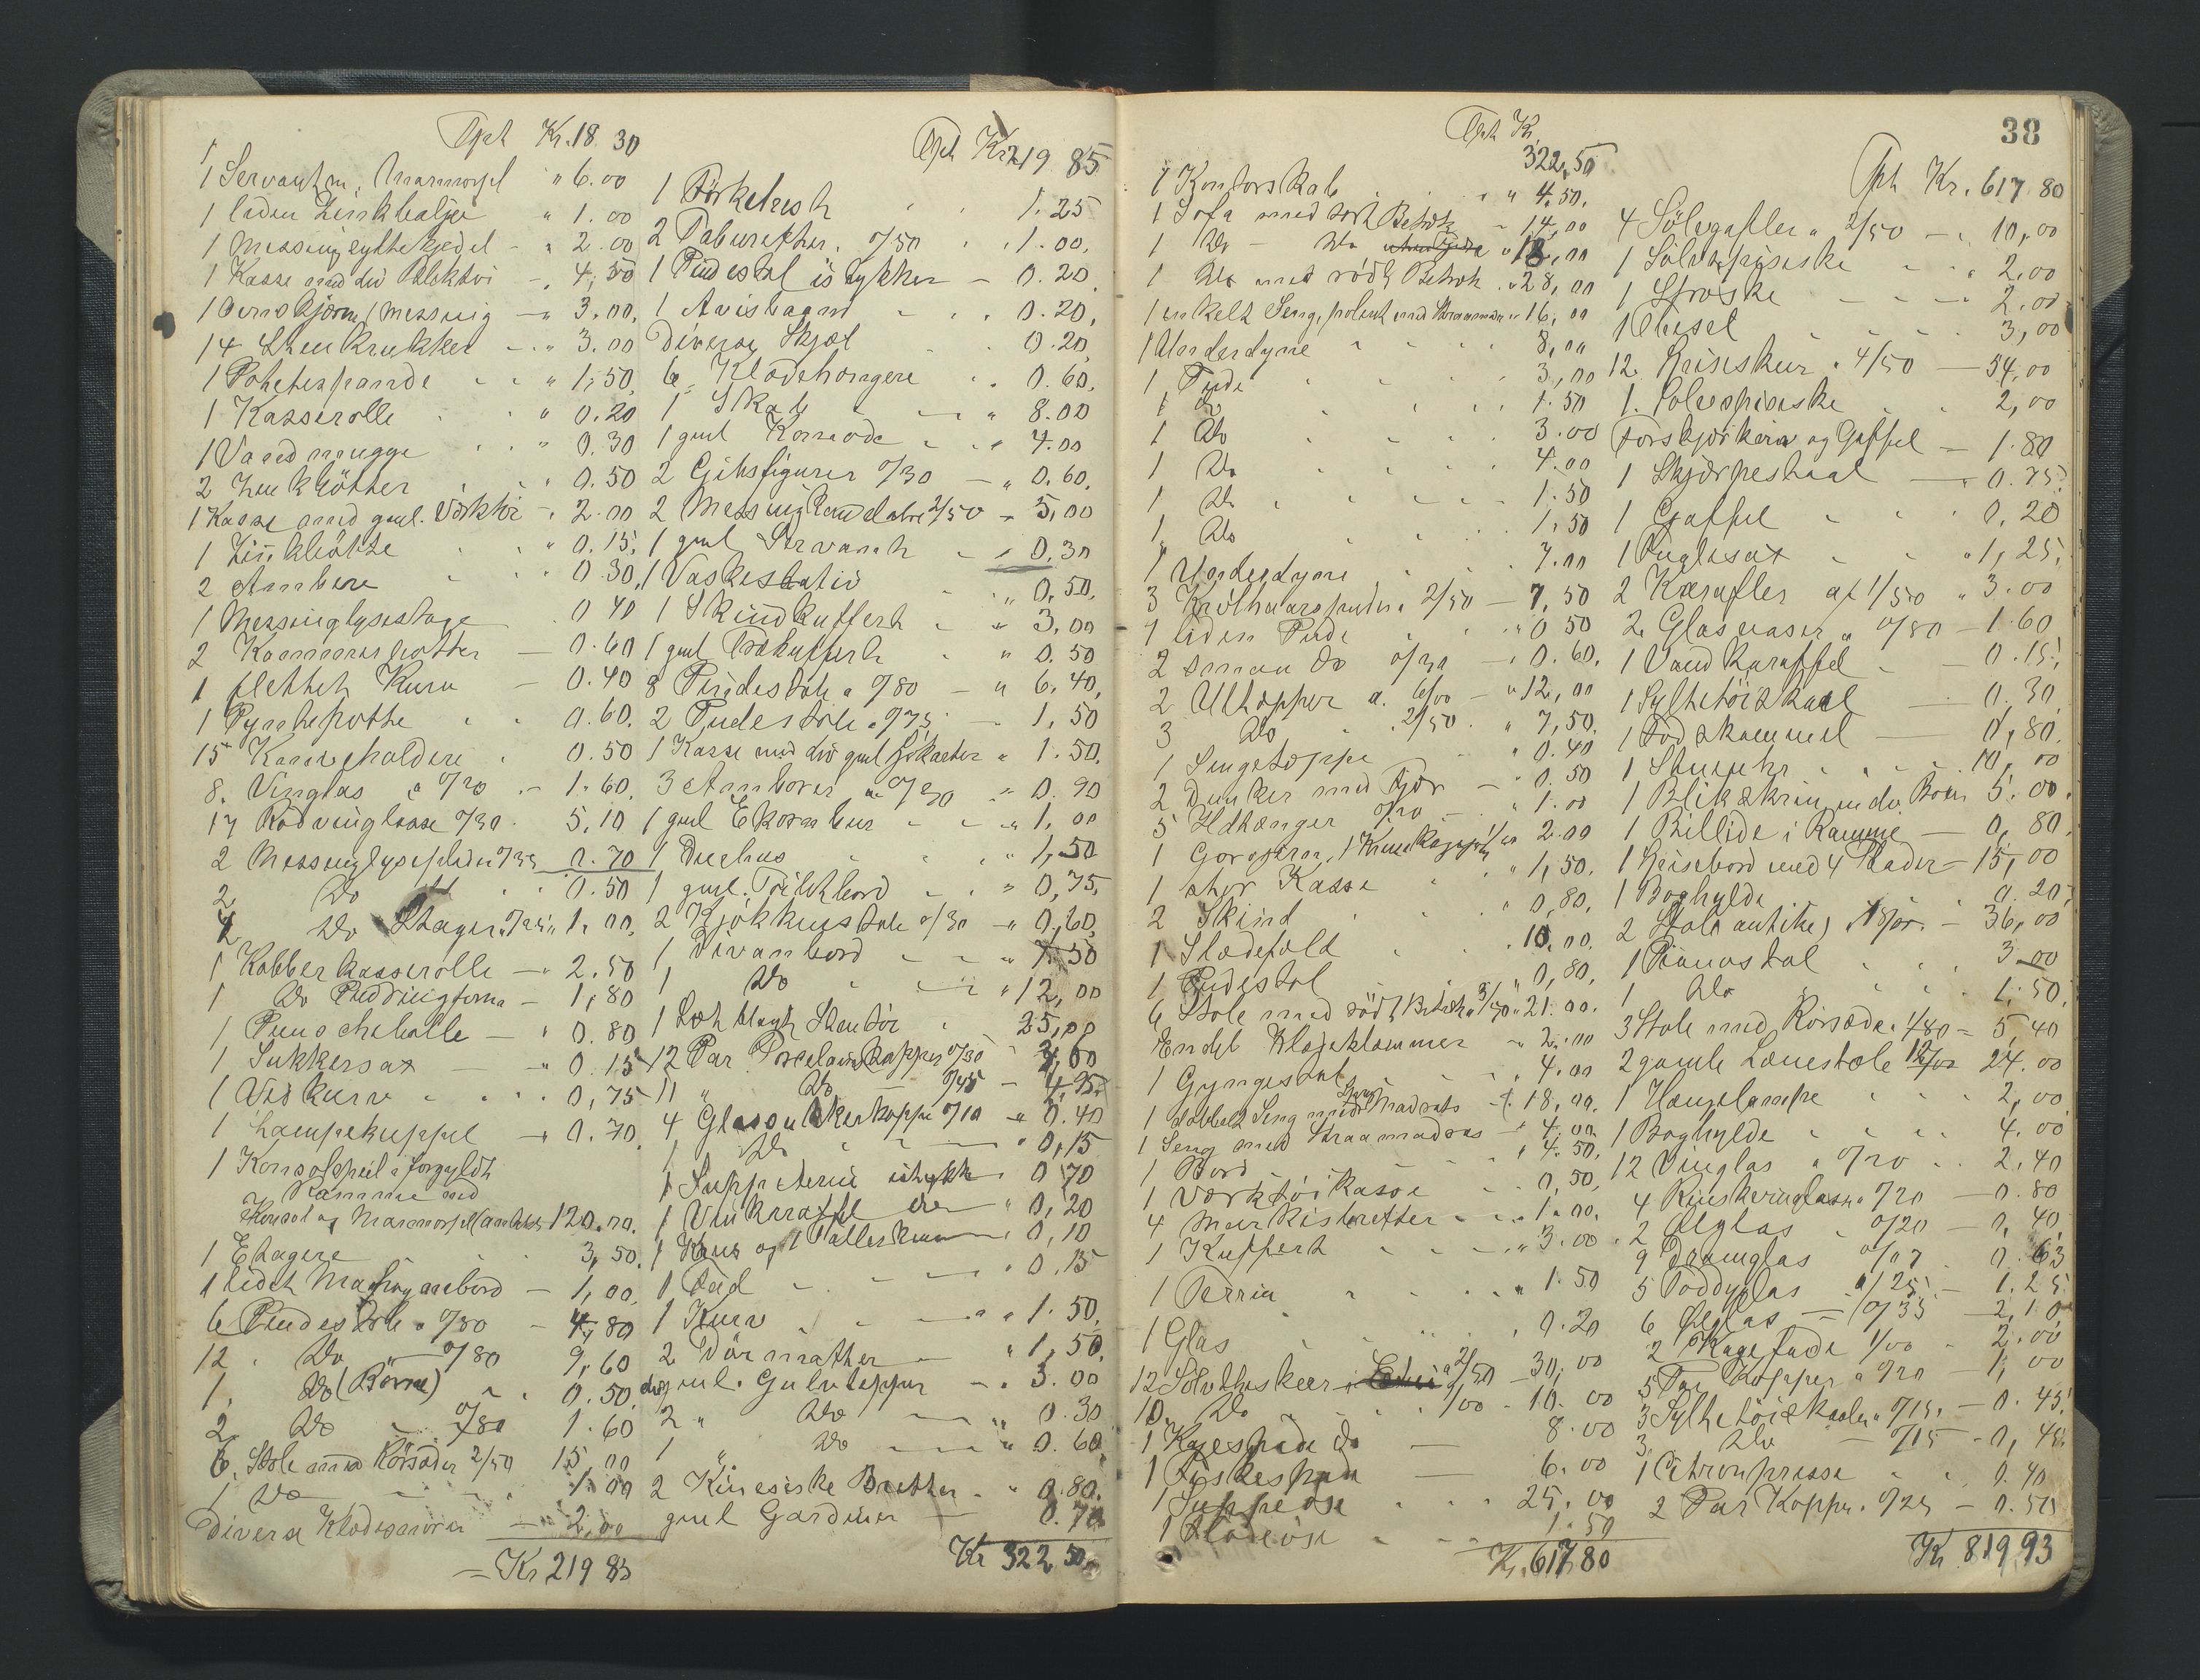 Tpt Kr. 18 30
1 Servant m. Marmorpl " 6.00
1 liden Zinkbalje " 1.00
1 Messing syltekjedel - " 2.00
1 Kasse med div - 4,50
1 Messing - " 3.00,
14 Krukker - " 3.00
1 Potetespande " 1,50
1 Kasserolle " 0.20
1 Vandmugge " 0.30
2 0.50
1 Kasse med gml. Værktøi - 2.00
1 Zinkbøtte " 0.15,
2 Ambere 0 30,
1 Messinglysestage 0 40
2 Kammerspotter - 0.60
1 flettet Kurv - 0.40
1 Pyntepotte 0.60.
15 0.50
8. Vinglas a 0/20 - 1.60,
17 Rødvinglasse 0/30. 5,10
2 Messinglyseplader 0/35 0.70
2 Do 0.50
4 Do Stager 0/25 " 1.00,
1 Kobberkasserolle - " 2.50
1 Do Puddingform - 1,80
1 Punschebolle - " 0.80
1 Sukkersax - " 0.15
1 Vedkurv 0,75
1 Lampekuppel - 0.70
1 Konsolspeil i forgyldt
Ramme med
Konsol og Marmorpl (antik) 120.00.
1 Etagere 3,50.
1 lidet Mahognibord - 1,00,
6 Pindestole a 0/80 - 4,80
12 Do " 0/80 9,60
1. Do (Børne) 0.50,
2 Do 0/80 1.60
6. Stole med Rørsæder 2/50 15,00
1 Do 1.00
Diverse - 2,00
= Kr 219 85
Tpt Kr. 219 85
1 Tørkestativ 1.25
2 Taburetter. 0/50 1.00,
1 Pindestol istykker - 0.20
1 Avisbaand 0.20,
Diverse Skjæl 0.20
6. Klædehængere 0.60.
1 Skab - " 8.00
1 gml Komode 4.00
2 Gibsfigurer 0/30 - " 0.60.
2 Messing Kandelabre 2/50 - 5,00
1 gml Servant 0,30
1 Vaskestativ " 0,50,
1 Skindkuffert " 3,00
1 gml Trækuffert " 0.50
8 Pindestole a 0/80 - " 6,40,
2 Pindestole a 0/75 - 1,50
1 Kasse med div gml " 1.50,
3 Ambore 0/30 " 0.90
1 gml " 1,00
1 Duehus " 1,50
1 gml. Toiletbord " 0,75,
2 Kjøkkenstole 0/30 - 0,60,
1 Divanbord 7.50
1 Do " 12,00
1 25,00
12 Par Porcelainskopper 0/30 - 3,60
11 " Do 0/45 - 4.95
4 Glas Sukkerkopper 0/10 - 0.40
1 Do " 0,15
1 Suppeterin istykk 0 70
1 Vinkaraffel " 0,20
1 Krus og 1 0,10
1 Fad " 0.15
1 Kurv " 1.50,
2 Dørmatter - " 1,50,
div gml. Gulvtepper - 3.00
2 " Do - " 0.30
1 " Do - " 0.60
2 Kinesiske Bretter " 0.80.
gml Gardiner - 0.70
Kr 322 50
Tpt Kr.
322,50
1 Kontorskab " 4,50,
1 Sofa med sort Betræk - 14,00
1 Do - Do 18,00
1 Do med rødt Betræk " 28,00
1 enkelt Seng, polert med Straamadr " 16,00
1 Underdyne 8,00
1 Pude 3,00
1 Do 1.50
1 Do 3.00
1 Do 4.00
1 Do 1.50
1 Do 1,50
1 Underdyne 7.00
3 Krølhaarspuder a 2/50 - 7,50
1 liden Pude " 0 50
2 smaa Do 0/30 - 0.60.
2 Ultæpper a. 6/00 - " 12,00
3 Do 2/50 " 7,50.
1 Sengetæppe " 0.40
2 Dunker med Fjær - 0.50
5 0/20 " 1.00
1 2.00
1 stor Kasse " 1,50.
2 Skind " 0,80,
1 Slædefeld 10.00.
1 Pindestol " 0,80,
6 Stole med rødt Betræk a 3/50 " 21.00.
Endel Klæseklemmer - 2.00
1 Gyngestol " 4.00
1 dobbelt Seng med Madrats - 18,00.
1 Seng med Straamadras - 4.00.
1 Bord " 4.50,
1 Værktøikasse 0,50,
4 Markisbretter 1.00.
1 Kuffert " 3.00
1 Terrin " 1.50
1 Glas 0.20
12 Sølvtheskeer a 2/50 - 30,00
10. Do 1/00 - 10.00
1 Kagespade do - 8.00
1 Fiskespade - 6.00
1 Suppeøse 25.00
1 Fløteøse 1.50
Kr. 617 80
38
Tpt Kr. 617 80
4 Sølvgafler a 2/50 - 10,00
1 Sølvspiseske 2,00
1 Strøske 2.00
1 3,00
12 Spiseskeer a 4/50 - 54,00
1. Sølvspiseske 2,00
Forskjærkniv og Gaffel - 1.80
1 Skjærpestaal - 0.75.
1 Gaffel 0,20
1 Fuglesax " 1,25,
2 Karafler at 1/50 " 3.00
2 Glasvaser a 0/80 - 1.60
1 Vandkaraffel - 0.15,
1 Syltetøiskaal - 0.30,
1 Fodskammel - 0,80.
1 Stueuhr 10,00
1 Blikskrin m div 5.00.
1 Billide i Ramme - 0,80
1 Spisebord med 4 Plader - 15,00
1 Boghylde 0.20,
2 Stole antike, 18/00. - 36,00
1 Pianostol 3 00
1 Do 1,50,
3 Stole med Rørsæde a 1/80 = 5,40
2 gamle Lænestole 12/00 24.00
1 Hængelampe 2,00
1 Boghylde 4.00
12 Vinglas a 0/20 2,40
4 Rinskvinglasse a 0/20 - 0.80
2 Ølglas a 0/20 - 0,40,
9 Dramglas 0/07 0.63
5 Toddyglas a /25 1.25
6 Ølglas - 0/35 - 2,10
2 Kagefade 1/00 - 2.00
5 Par Kopper a 0/20 - 1,00
3 Syltetøiskaaler a 0/15. - 0.45
3, Do - 0/15 - 0,45
1 Citronpresse 0.40
2 Par Kopper a 0/25 - 0.50
Kr 819,93